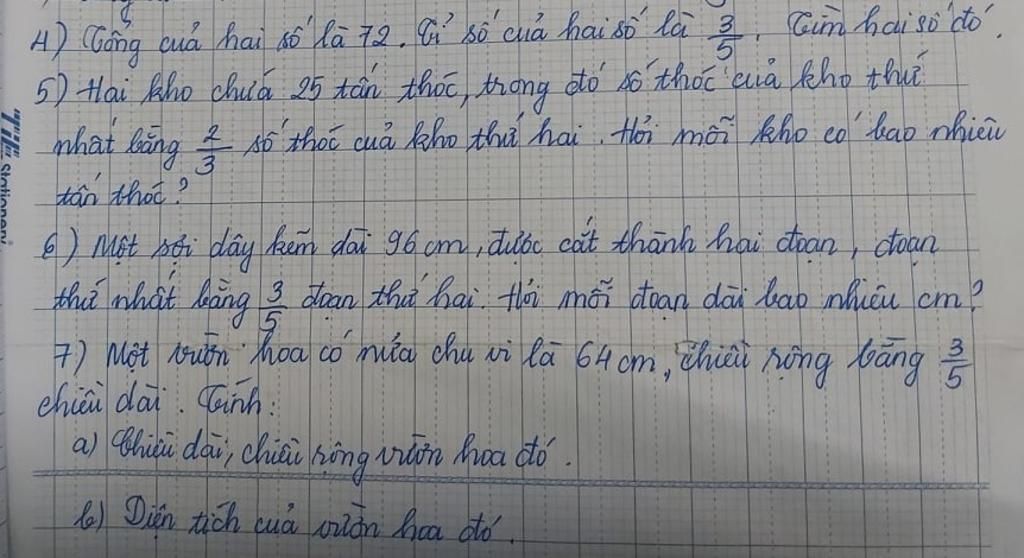 4) Tổng của hai số là 72. Tỉ số của hai số là 3/5. Tìm hai số đó.
5) Hai kho chứa 25 tấn thóc, trong đó số thóc của kho thứ
nhất bằng 2/3 số thóc của kho thứ hai. Hỏi mỗi kho có bao nhiêu
tấn thóc?
6) Một sợi dây kẽm dài 96 cm, được cắt thành hai đoạn, đoạn
thứ nhất bằng 3/5 đoạn thứ hai. Hỏi mỗi đoạn dài bao nhiêu cm?
7) Một vườn hoa có nửa chu vi là 64 cm, chiều rộng bằng 3/5
chiều dài. Tính:
a) Chiều dài, chiều rộng vườn hoa đó.
b) Diện tích của vườn hoa đó.
Stationery